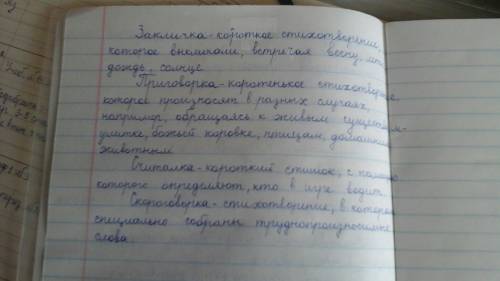 Закличка-короткое стихотворение,
которое выкликали, встречая весну,
дождь, солнце
Приговорка-коротенькое стихотворение,
которое произносят в разных случаях,
например, обращаясь к живым существам-
улитке, божьей коровке, птицам, домашним
животным
Считалка-короткий стишок, с помощью
которого определяют, кто в игре водит.
Скороговорка-стихотворение, в котором
специально собраны труднопроизносимые
слова.